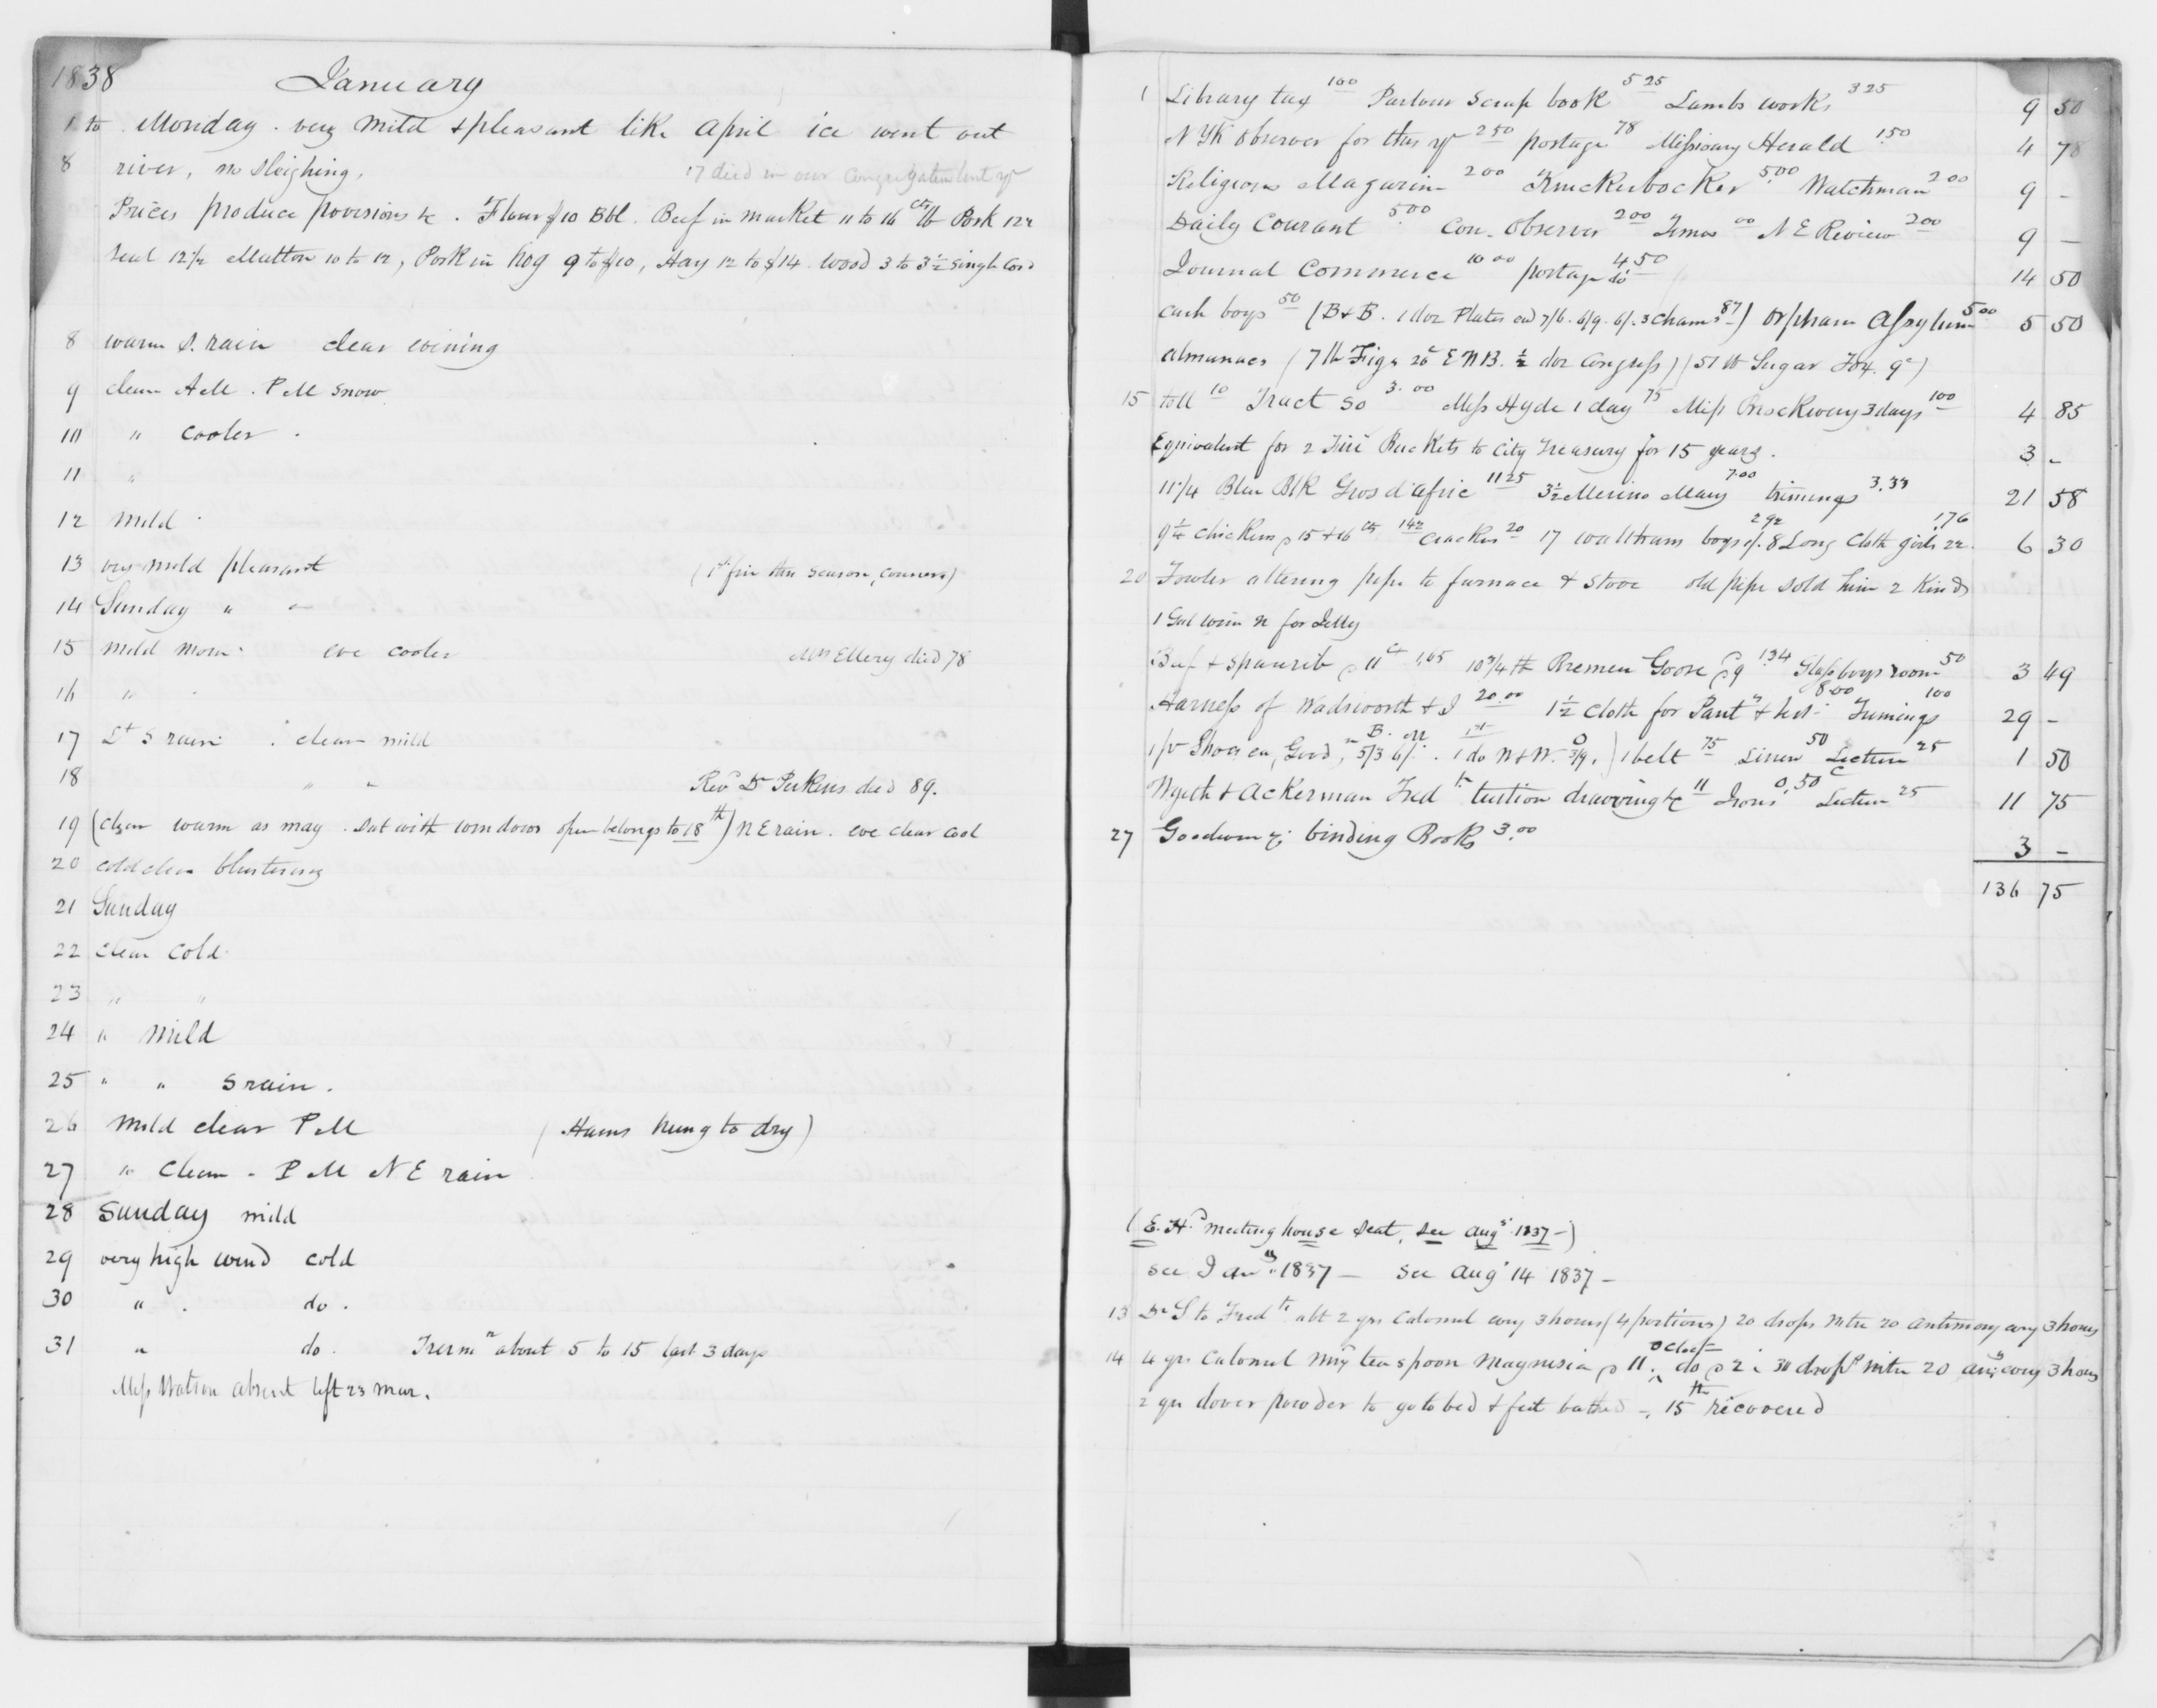 1838 January
1 to Monday. very mild & pleasant like April ice went out
8 river, no sleighing, 17 died in our Congregation last yr
Prices produce provisions &c. Flour $10 Bbl. Beef in market 11 to 16 cts lb Pork 12½
Veal 12½ Mutton 10 to 12, Pork in hog 9 to $10, Hay 12 to $14 wood 3 to 3½ single Cord
8 warm S. rain clear evining
9 clear AM. PM snow
10 " cooler.
11 "
12 mild
13 very mild pleasant (1st fire this season, )
14 Sunday " "
15 mild morn. eve cooler Mrs Ellery died 78
16 "
17 Lt S rain. clear mild
18 " " Revd Dr Perkins died 89.
19 (clear warm as may. Sat with windows open belongs to 18th) N E rain. eve clear cool
20 cold clear blustering
21 Sunday
22 clear cold
23 " "
24 " mild
25 " " S rain.
26 mild clear PM (Hams hung to dry)
27 " clear - P M N E rain
28 Sunday mild
29 very high wind cold
30 " . do.
31 " do. Therm about 5 to 15 last 3 days
Miss Watson absent left 23 Mar.
1 Library tax 100 Parlour Scrap book 5 25 Lambs works 3 25 9 50
N YK Observer for this yr 2 50 postage 78 Missionary Herald 1.50 4 78
Religious Magazine 2 00 Knickerbocker 5.00 Watchman 2 00 9 -
Daily Courant 5.00 Con. Observer 2 00 Times 00 N E Review 2 00 9 -
Journal Commerce 10 00 postage do 4 50 14 50
cash boys 50 (B & B. 1 doz Plates ea 7/6. 6/9. 6/. 3 Cham 87) Orphan Assylum 5 00 5 50
almanacs (7 lb Figs 20c E N B. ½ doz Congress) (51 lb Sugar Fox. 9c)
15 toll 10 Tract So 3.00 Miss Hyde 1 day 75 Miss Brockway 3 days 100 4 85
Equivalent for 2 Fire Buckets to City Treasury for 15 years. 3 -
11¼ Blue Blk Gros d'afric 11 25 3½ Merino Mary 7.00 trimings 3.33 21 58
9½ chickens p 15 & 16 cts 142 Crackers 20 17 Waltham boys 292 8 Long Cloth girls 22. 176 6 30
20 Fowler altering pipe to furnace & stove old pipe sold him 2 Kinds
1 Gal wine N for Jelly
Beef & sparerib p 11 c 1,65 10¾ lb Bremen Goose p 9 1.34 Glass boys room 50 3 49
Harness of Wadsworth & I 20.00 1½ cloth for Pants & vest 8.00 Trimings 100 29 -
1 pr Shoes ea, Good, B. M 5/3 6/. 1 do N & W. 3/9.) 1 belt 75 Linen 50 Lecture 25 1 50
Wyeth & Ackerman Fredk tuition drawing &c 11 Irons 0.50 Lecture 25 11 75
27 Goodwin binding Books 3.00 3 -
136 75
(E. H.d meeting house seat, see Augs 1837 -)
see Jany. 1837 - see Augt 14 1837 -
13 Dr S to Fredk abt 2 grs Calomel evry 3 hours (4 portions) 20 drops nitre 20 antimony evry 3 hours
14 4 grs Calomel mix tea spoon magnesia p 11 oclock do p 2. 30 drops nitre 20 evry 3 hours
2 grs dover powder to go to bed & feet bathed -. 15th recovered